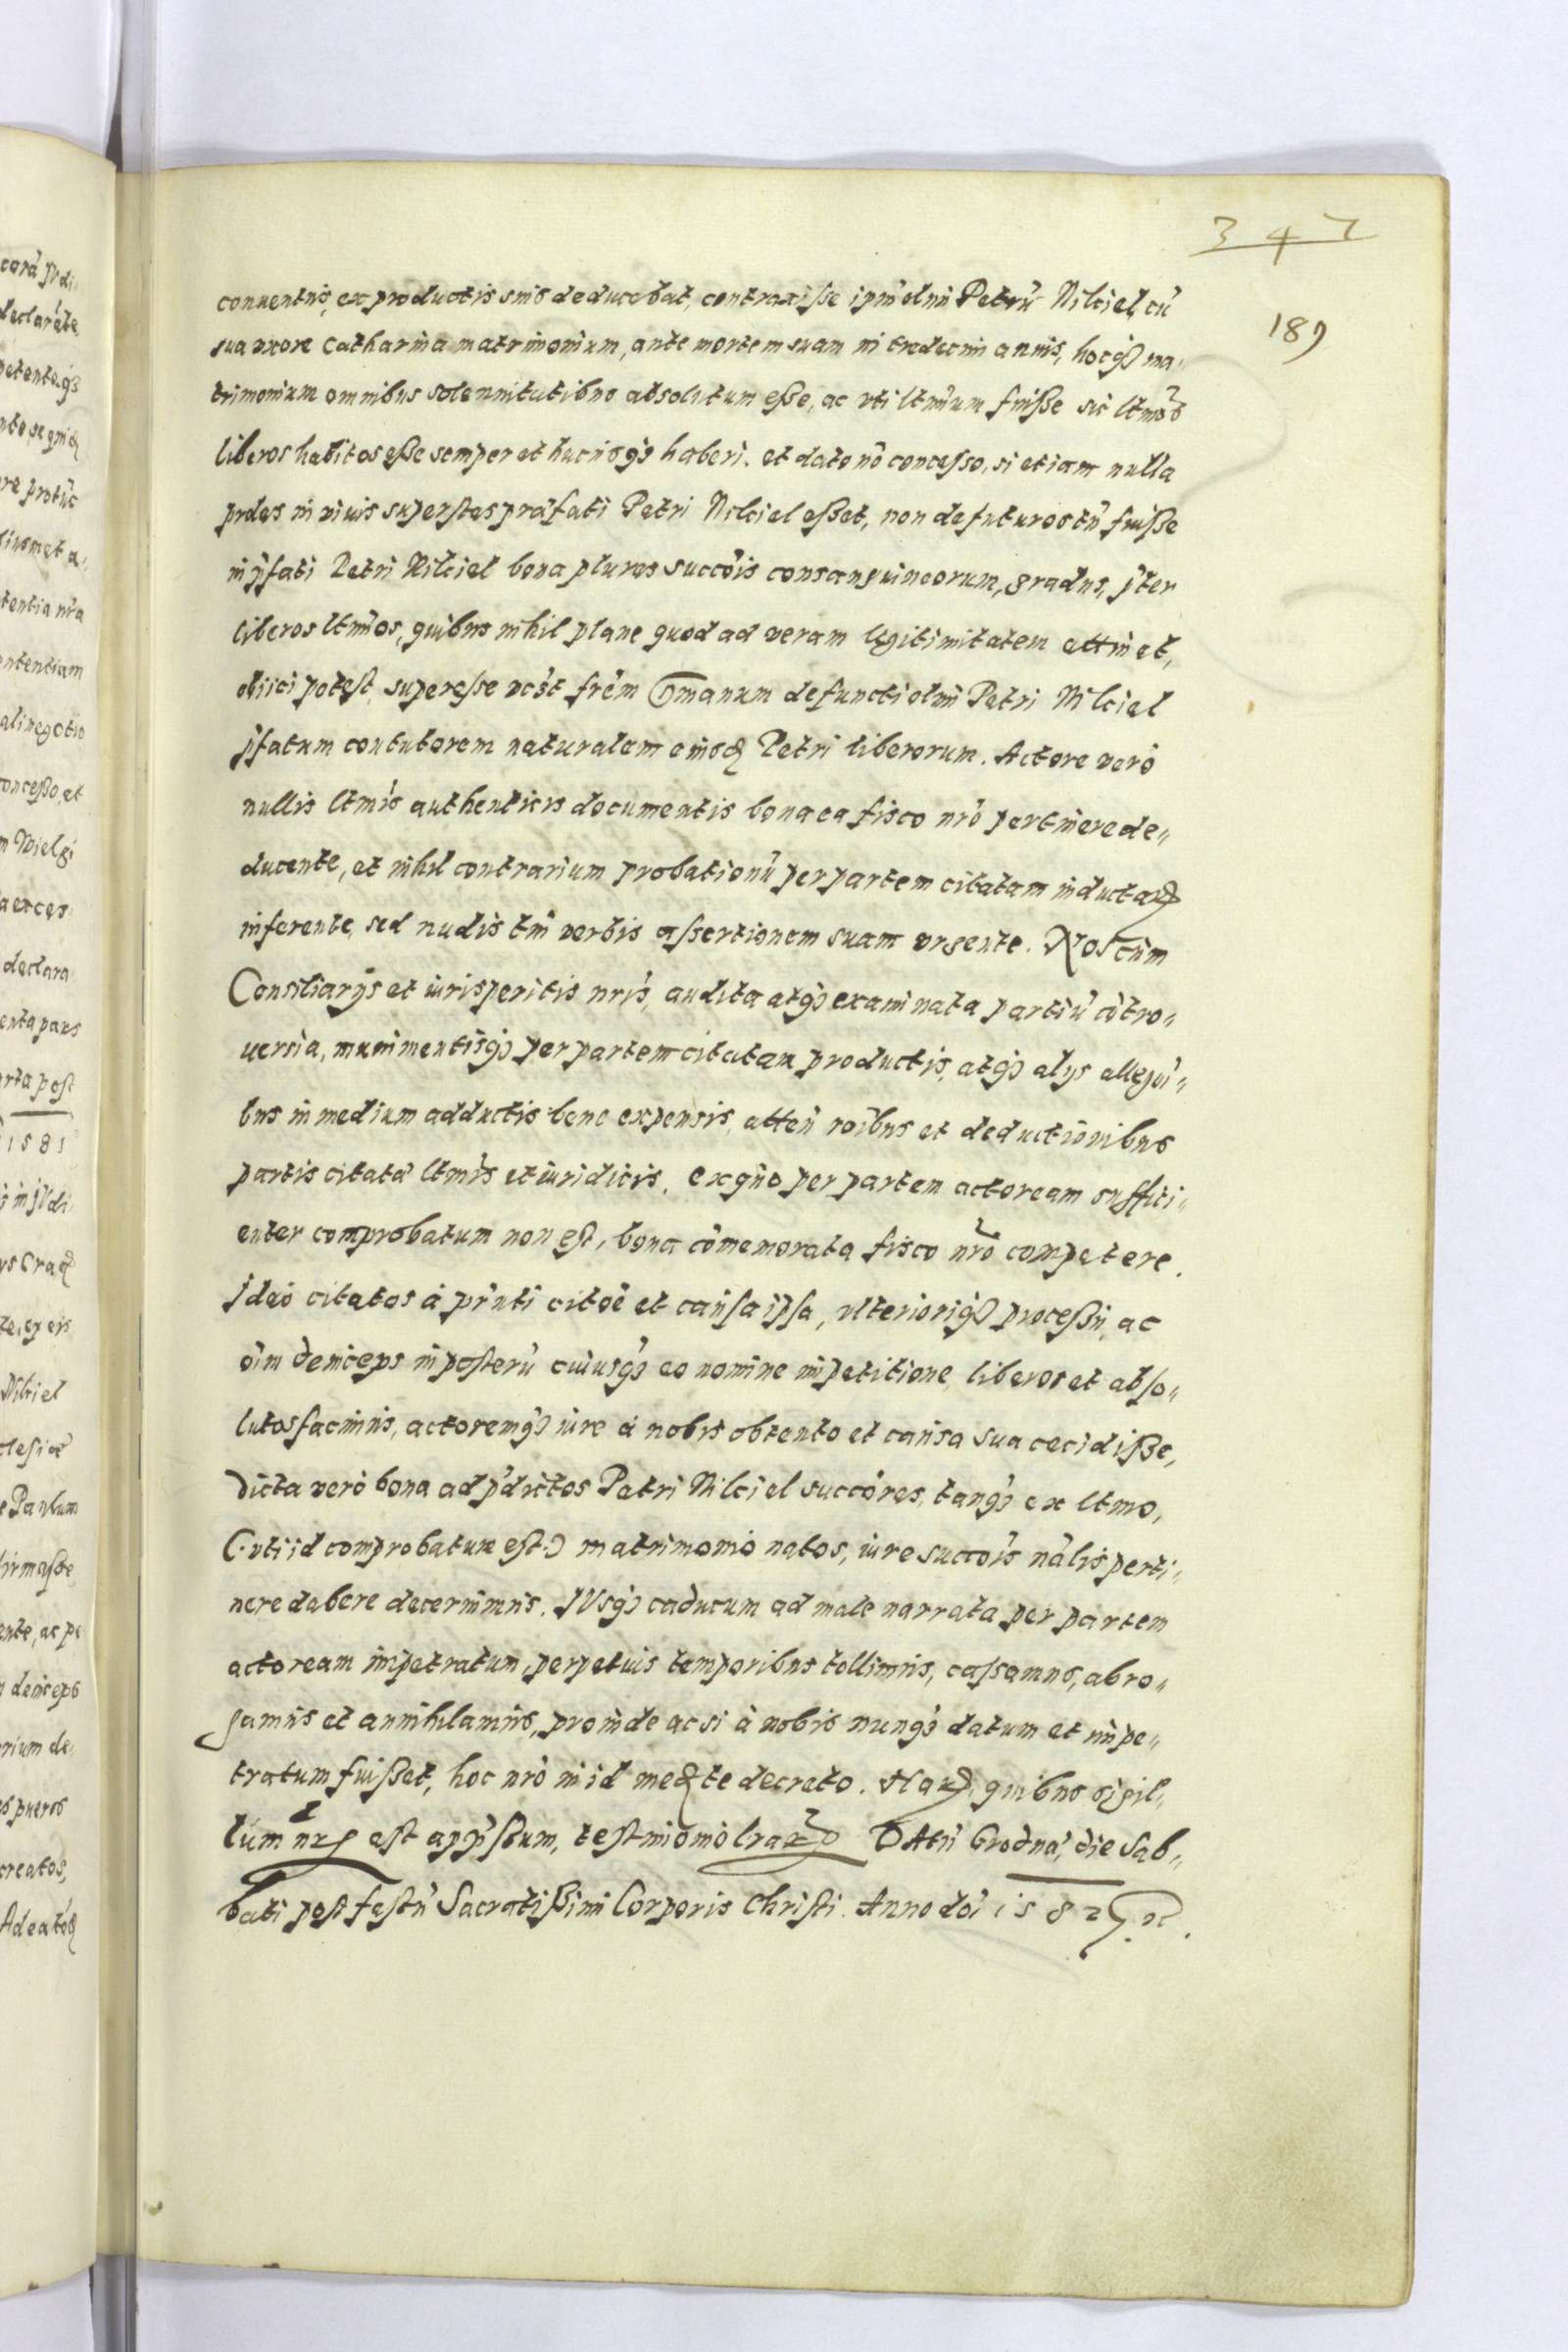 347
189
conuentus, ex productis suis deducebat, contraxisse ipm̃ olim Petrũ Nilciel, cũ
sua uxore Catharina matrimonium, ante mortem suam in tredecim annis, hocq́ꝫ ma-
trimonium omnibus solennitatibus absolutum eße, ac vti ltm̃um fuiße sic ltmõs
liberos habitos eße semper et hucusq́ꝫ haberi. et dato nõ concesso, si etiam nulla
proles in viuis superstes præfati Petri Nilciel eßet, non defuturos tñ fuiße
in p̃fati Petri Nilciel bona plures succõis consanguineorum, gradus, p̃ter
liberos ltm̃os, quibus nihil plane quod ad veram legitimitatem attinet,
obiici potest, superesse frẽm germanum defuncti olim Petri Nilciel
p̃fatum contutorem naturalem eiusdꝫ Petri liberorum. Actore verò
nullis ltmĩs authenticis documentis bona ea fisco nrõ pertinere de„
ducente, et nihil contrarium probationũ per partem citatam inductarꝫ
inferente, sed nudis tm̃ verbis assertionem suam vrgente. Nos cum
Consiliarijs et iurisperitis nrĩs, audita atq́ꝫ examinata partiũ cõtro„
uersia, munimentisq́ꝫ per partem citatam productis, atq́ꝫ alijs allegõi„
bus in medium adductis bene expensis, atteñ rõibus et deductionibus
partis citatæ ltmĩs et iuridicis, ex quo per partem actoream suffici„
enter comprobatum non est, bona cõmemorata fisco nrõ competere.
Ideò citatos à pñti citõe et causa ipsa, vlteriorìq́ꝫ proceßu, ac
oĩm deinceps in posterũ cuiusq́ꝫ eo nomine impetitione, liberos et abso„
lutos facimus, actoremq́ꝫ iure à nobis obtento et causa sua cecidiße,
Dicta verò bona ad p̃dictos Petri Nilciel succõres, tanq́ꝫ ex ltmo,
(: vti id comprobatum est :) matrimonio natos, iure succõis nãlis perti„
nere debere decernimus. IVsq́ꝫ caducum ad male narrata per partem
actoream impetratum, perpetuis temporibus tollimus, cassamus, abro„
gamus et annihilamus, proinde ac si à nobis nunq́ꝫ datum et impe„
tratum fuißet, hoc nrõ in id medꝫte decreto. Harꝫ, quibus sigil„
lum nrm̃ est app̃ßum, testimonio lrarꝫ DAtũ Grodnæ, die Sab„
bati post festũ Sacratißimi Corporis Christi. Anno dõi 1582.